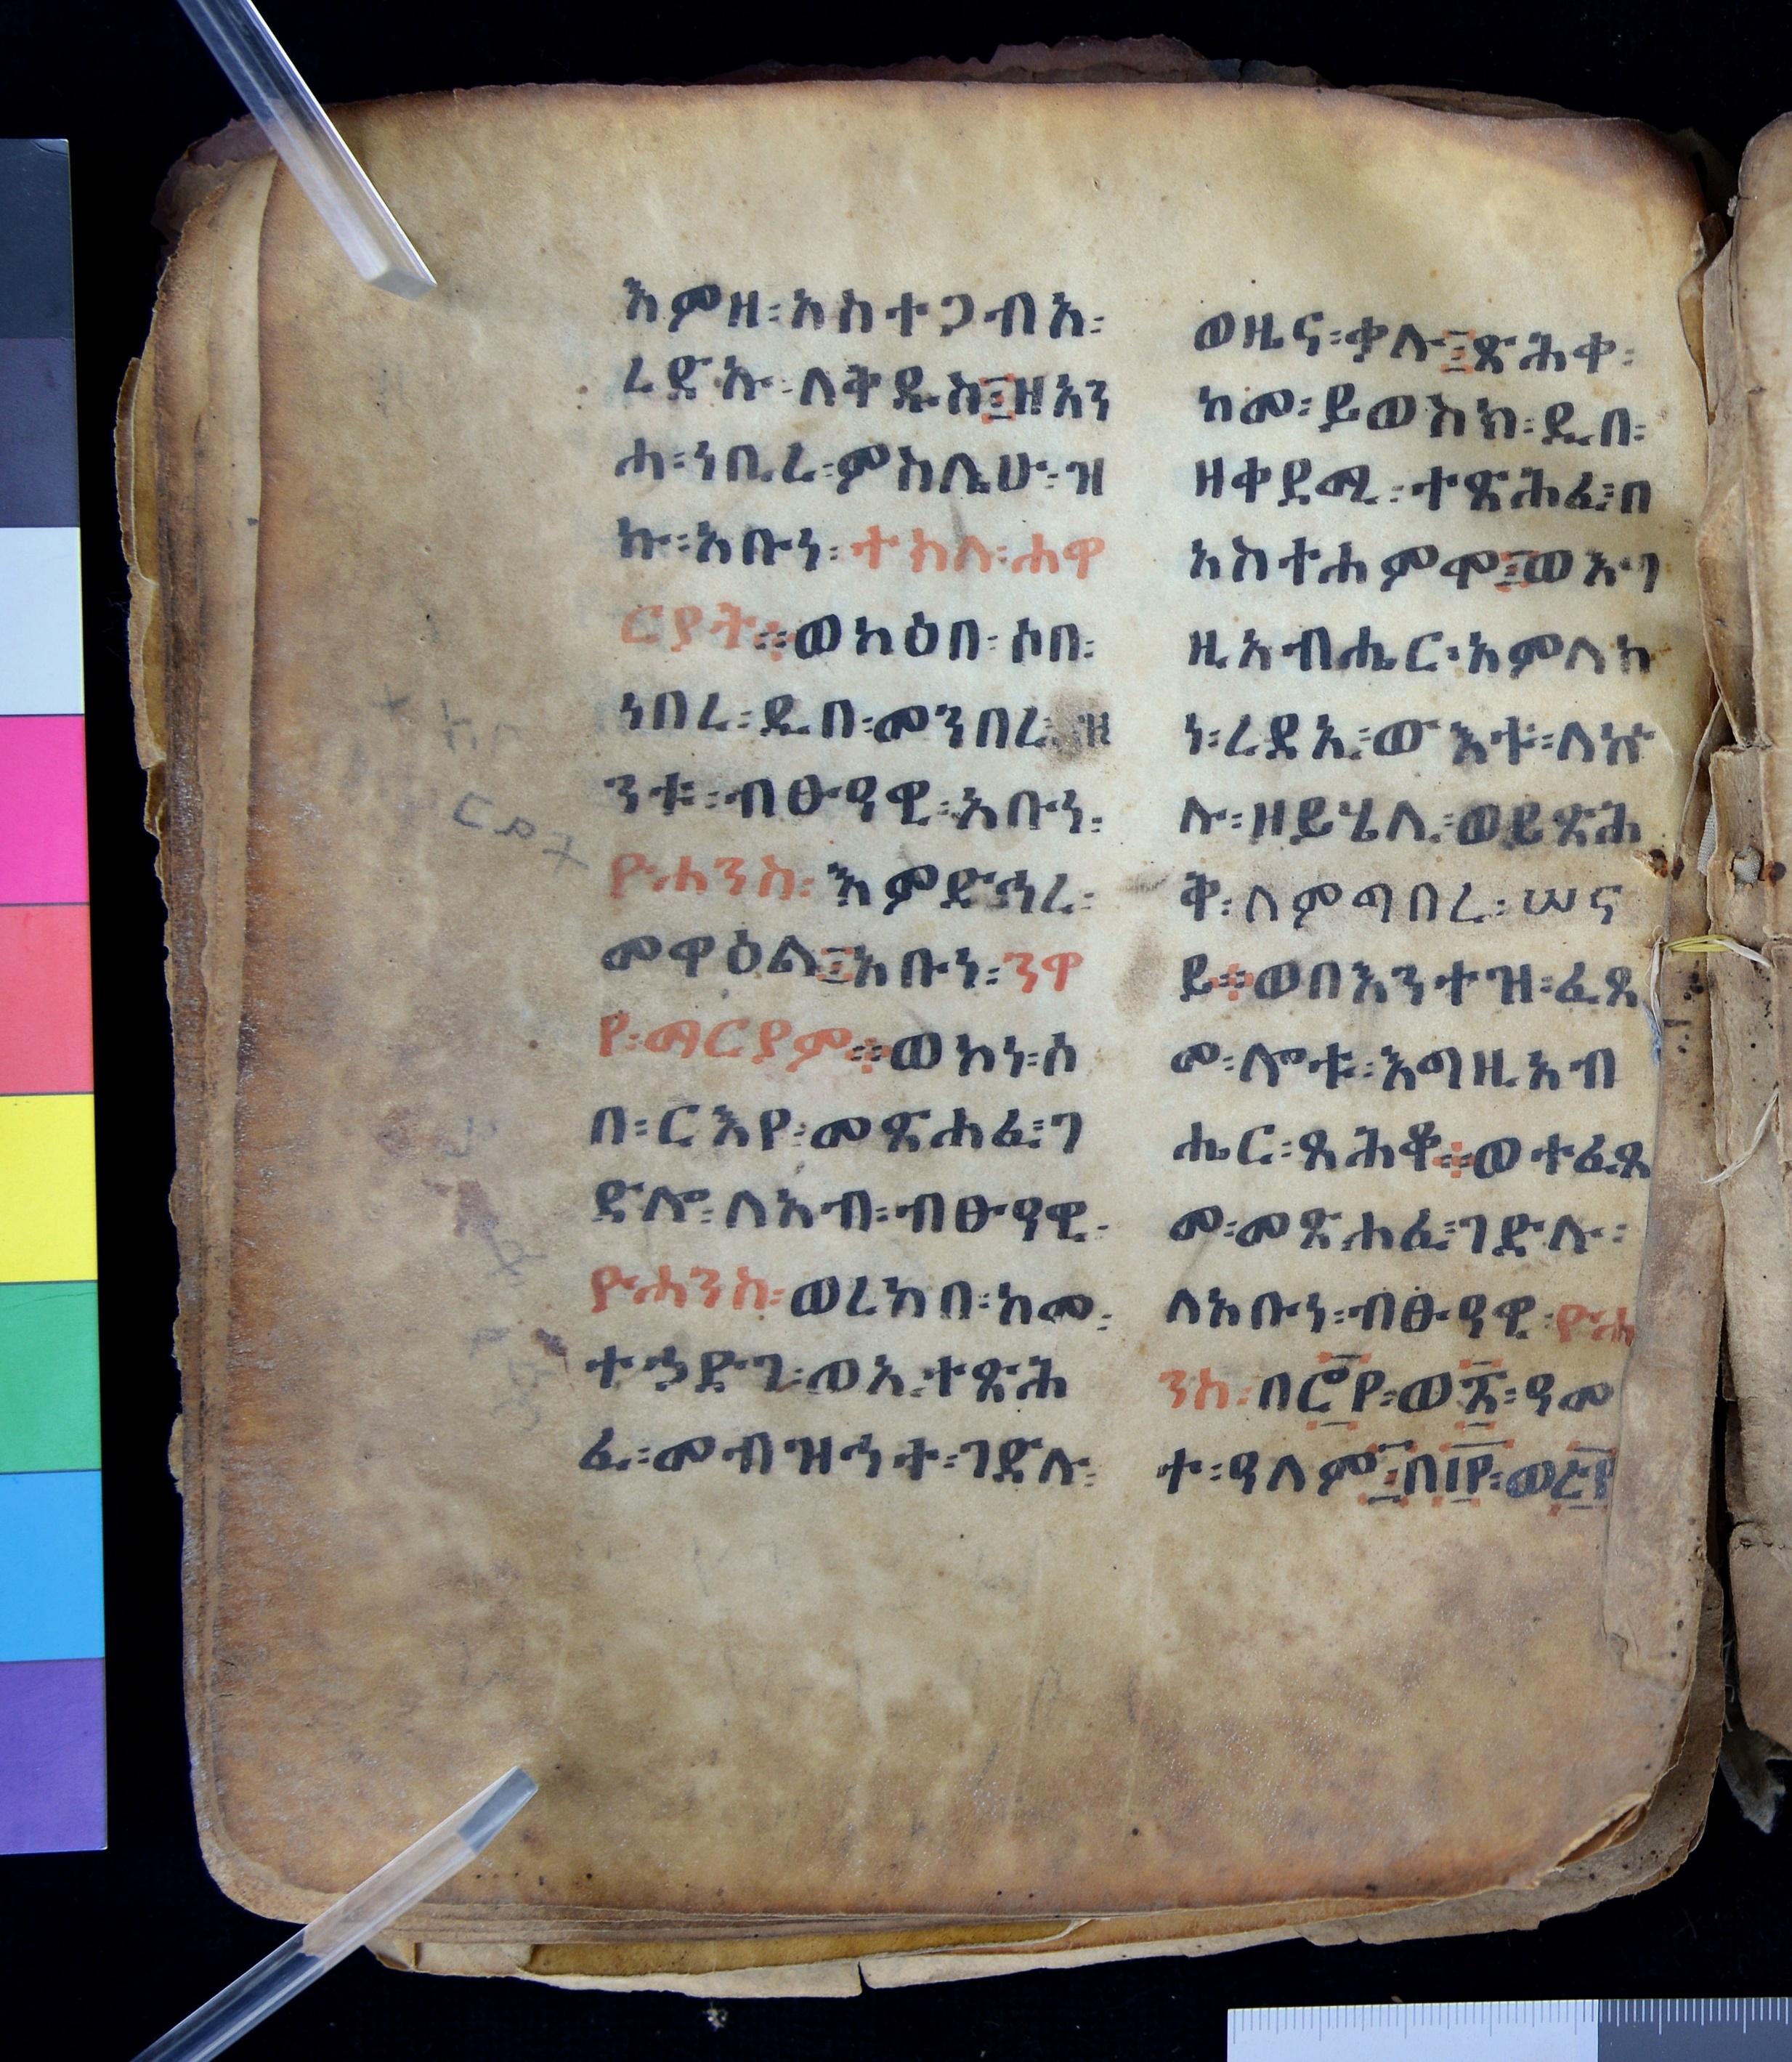 እምዘ፡አስተጋብአ፡
ረድኡ፡ለቅዱስ፤ዘአን
ሐ፡ነቢረ፡ምስሌሁ፡ዝ
ኩ፡አቡነ፡ተክለ፡ሐዋ
ርያት።ወካዕበ፡ሶበ፡
ነበረ፡ዲበ፡መንበረ፡ዝ
ንቱ፡ብፁዓዊ፡አቡነ፡
ዮሐንስ፡እምድኅረ፡
መዋዕል፤አቡነ፡ንዋ
የ፡ማርያም።ወአነ፡ሶ
በ፡ርእየ፡መጽሐፈ፡ገ
ድሎ፡ለአብ፡ብፁዓዊ፡
ዮሐንስ፡ወረከበ፡ከመ፡
ተኃድገ፡ወኢተጽሕ
ፈ፡መብዝኅተ፡ገድሉ፡
ወዜና፡ቃሉ፤ጽሕቀ፡
ከመ፡ይወስክ፡ዲበ፡
ዘቀደሚ፡ተጽሕፈ፡በ
አስተሐምሞ፤ወእግ
ዚአብሔር፡አምላከ
ነ፡ረድአ፡ውእቱ፡ለኵ
ሉ፡ዘይሄሊ፡ወይጽሕ
ቅ፡ለምግበረ፡ሠና
ይ።ወበእንተዝ፡ፈጸ
መ፡ሎቱ፡እግዚአብ
ሔር፡ጻሕቆ።ወተፈጸ
መ፡መጽሐፈ፡ገድሉ፡
ለአቡነ፡ብፁዓዊ፡ዮሐ
ንስ፡በ፸፻፡ወ፺፡ዓመ
ተ፡ዓለም፤በ፲፻፡ወ፪፻